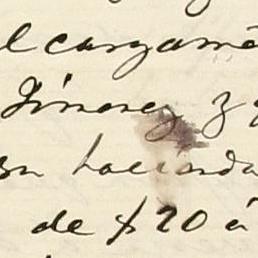 l cargame
Jimenez y
su hacienda
de $20 á